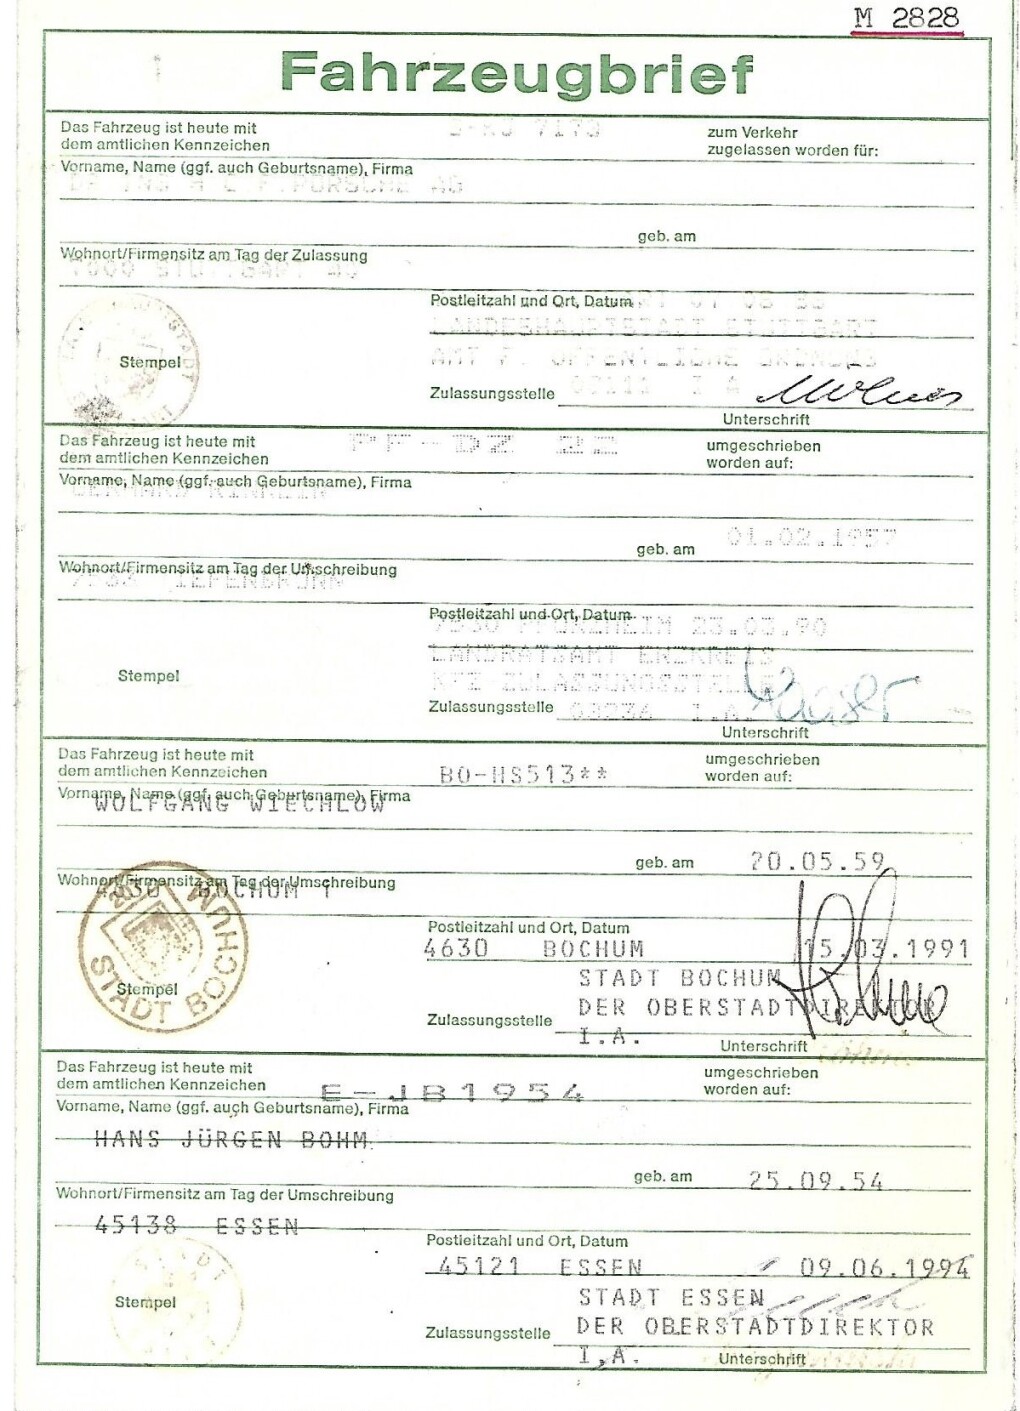 M 2828
Fahrzeugbrief
Das Fahrzeug ist heute mit
dem amtlichen Kennzeichen
zum Verkehr
zugelassen worden für:
Vorname, Name (ggf. auch Geburtsname), Firma
PORSCHE AG
geb. am
Wohnort/Firmensitz am Tag der Zulassung
Postleitzahl und Ort, Datum
LANDESHAUPTSTADT STUTTGART
Stempel
Zulassungsstelle
Unterschrift
Das Fahrzeug ist heute mit
dem amtlichen Kennzeichen
PF-DZ 22
umgeschrieben
worden auf:
Vorname, Name (ggf. auch Geburtsname), Firma
geb. am 01.02.1957
Wohnort/Firmensitz am Tag der Umschreibung
TIEFENBRONN
Postleitzahl und Ort, Datum
7530 PFORZHEIM 23.03.90
LANDRATSAMT ENZKREIS
KFZ-ZULASSUNGSSTELLE
Stempel
Zulassungsstelle I.A.
Unterschrift
Das Fahrzeug ist heute mit
dem amtlichen Kennzeichen
BO-HS513**
umgeschrieben
worden auf:
Vorname, Name (ggf. auch Geburtsname), Firma
WOLFGANG WIECHLOW
geb. am 20.05.59
Wohnort/Firmensitz am Tag der Umschreibung
4630 BOCHUM 1
Postleitzahl und Ort, Datum
4630 BOCHUM 15.03.1991
STADT BOCHUM
Stempel
STADT BOCHUM
DER OBERSTADTDIREKTOR
Zulassungsstelle
I.A.
Unterschrift
Das Fahrzeug ist heute mit
dem amtlichen Kennzeichen
E-JB1954
umgeschrieben
worden auf:
Vorname, Name (ggf. auch Geburtsname), Firma
HANS JÜRGEN BOHM
geb. am 25.09.54
Wohnort/Firmensitz am Tag der Umschreibung
45138 ESSEN
Postleitzahl und Ort, Datum
45121 ESSEN 09.06.1994
STADT ESSEN
Stempel
Zulassungsstelle DER OBERSTADTDIREKTOR
I,A.
Unterschrift